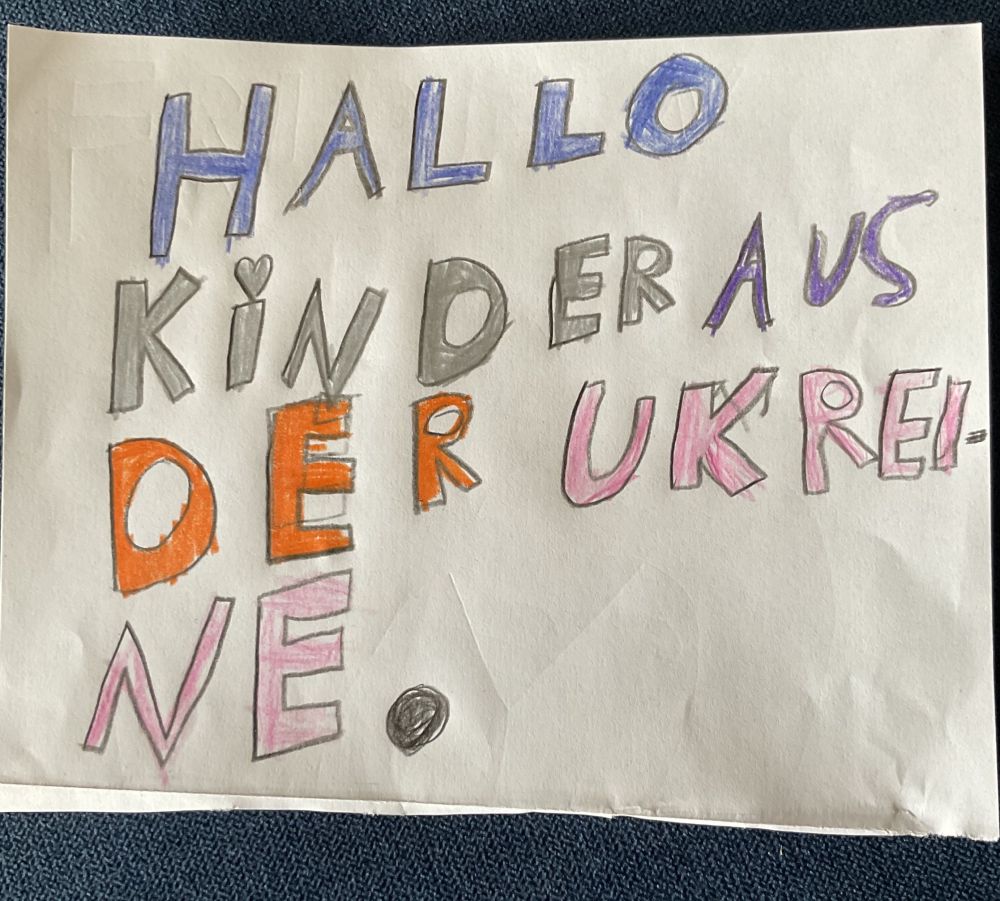 HALLO
KiNDER AUS
DER UKREI-
NE.